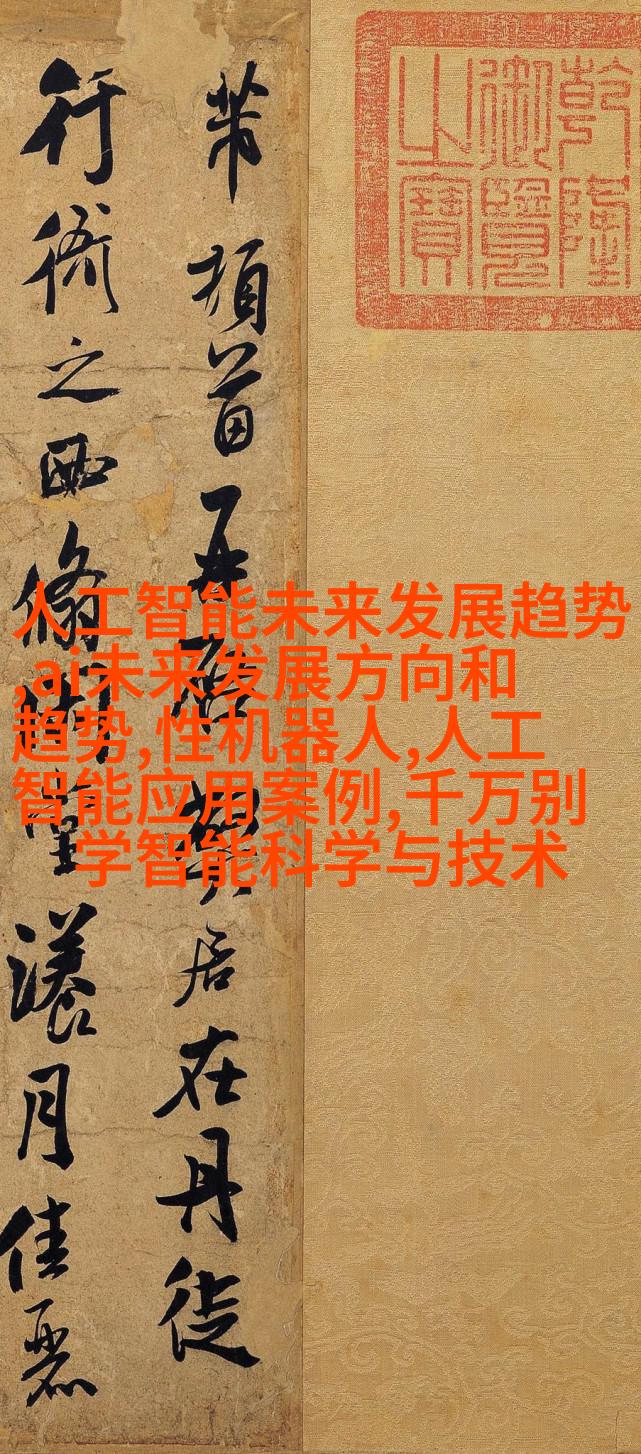 乾隆
御覽
之寶
芾頓首再啓弊居在丹徒
行衙之西翛閒堂漾月佳麗
人工智能未来发展趋势
,ai未来发展方向和
趋势,性机器人,人工
智能应用案例,千万别
学智能科学与技术